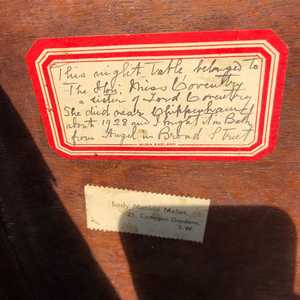 This night table belonged to
The Hon. Miss Coventry
a sister of Lord Coventry
She died near Chippenham
about 1928 and I bought it in Bath
from Angel in Broad Street
Lady Mea
25, Gardens,
S.W.